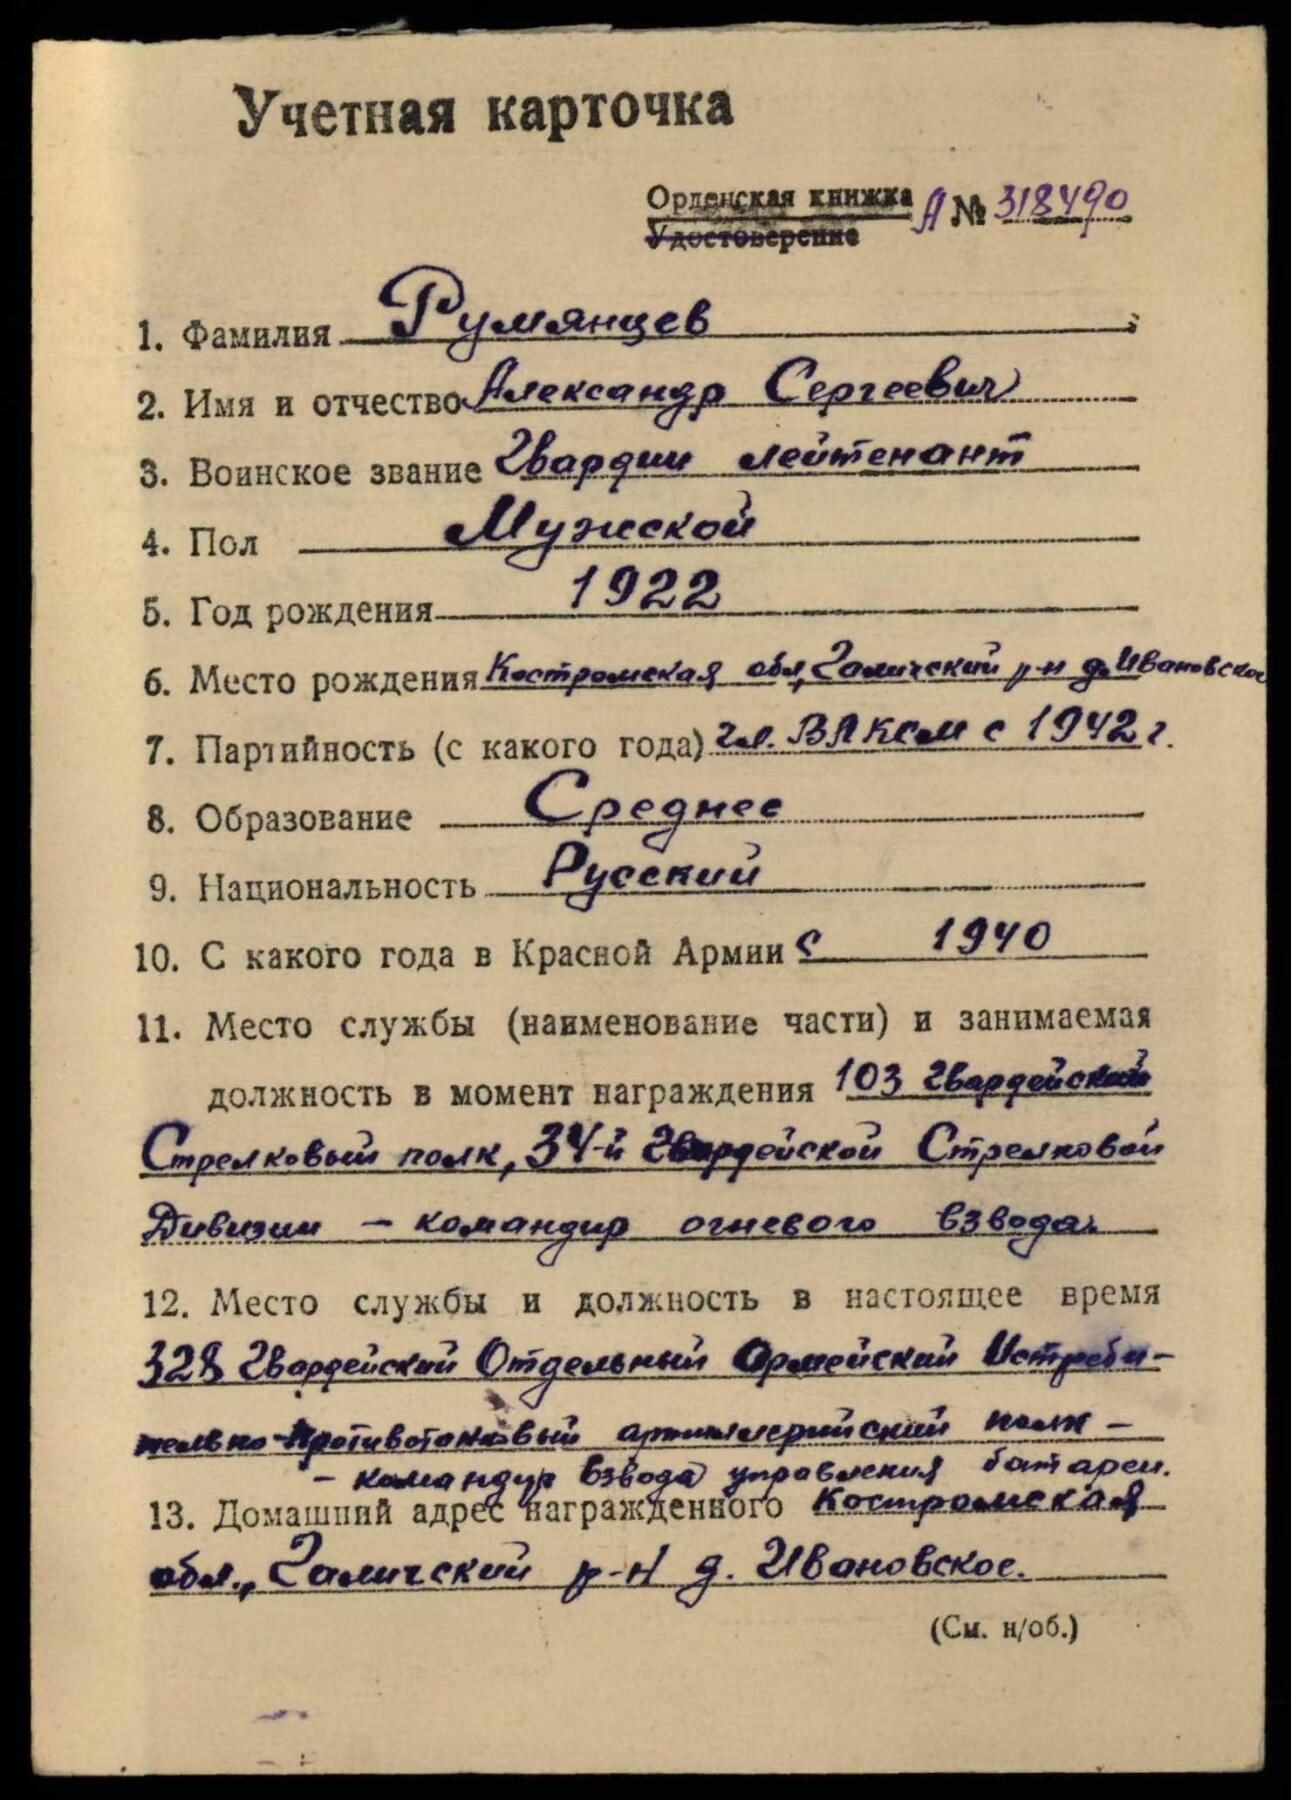 Учетная карточка
Орденская книжка А № 318490
Удостоверение
1. Фамилия Румянцев
2. Имя и отчество Александр Сергеевич
3. Воинское звание Гвардии лейтенант
4. Пол Мужской
5. Год рождения 1922
6. Место рождения Костромская обл, Галичский р-н д. Ивановское
7. Партийность (с какого года) чл. ВЛКСМ с 1942 г.
8. Образование Среднее
9. Национальность Русский
10. С какого года в Красной Армии с 1940
11. Место службы (наименование части) и занимаемая
должность в момент награждения 103 Гвардейский
Стрелковый полк, 34-й Гвардейской Стрелковой
Дивизии – командир огневого взвода.
12. Место службы и должность в настоящее время
328 Гвардейский Отдельный Армейский Истреби-
тельно-Противотанковый артиллерийский полк –
– командир взвода управления батареи.
13. Домашний адрес награжденного Костромская
обл., Галичский р-н д. Ивановское.
(См. н/об.)